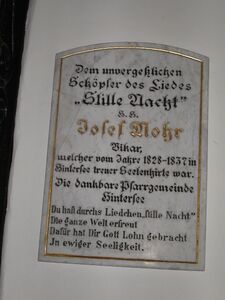 Dem unvergeßlichen
Schöpfer des Liedes
„Stille Nacht"
H. H.
Josef Mohr
Vikar,
welcher vom Jahre 1828-1837 in
Hintersee treuer Seelenhirte war.
Die dankbare Pfarrgemeinde
Hintersee
Du hast durchs Liedchen „stille Nacht"
Die ganze Welt erfreut
Dafür hat Dir Gott Lohn gebracht
In ewiger Seeligkeit.